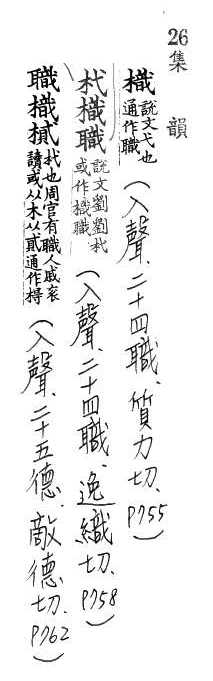 26 集韻
樴
說文弋也
通作職
(入聲.二十四職.質力切.P755)
杙樴職
說文劉劉杙
或作樴職
(入聲.二十四職.逸織切.P758)
職樴樲
杙也周官有職人戚袞
讀或从木从貳通作棏
(入聲.二十五德.敵德切.P762)